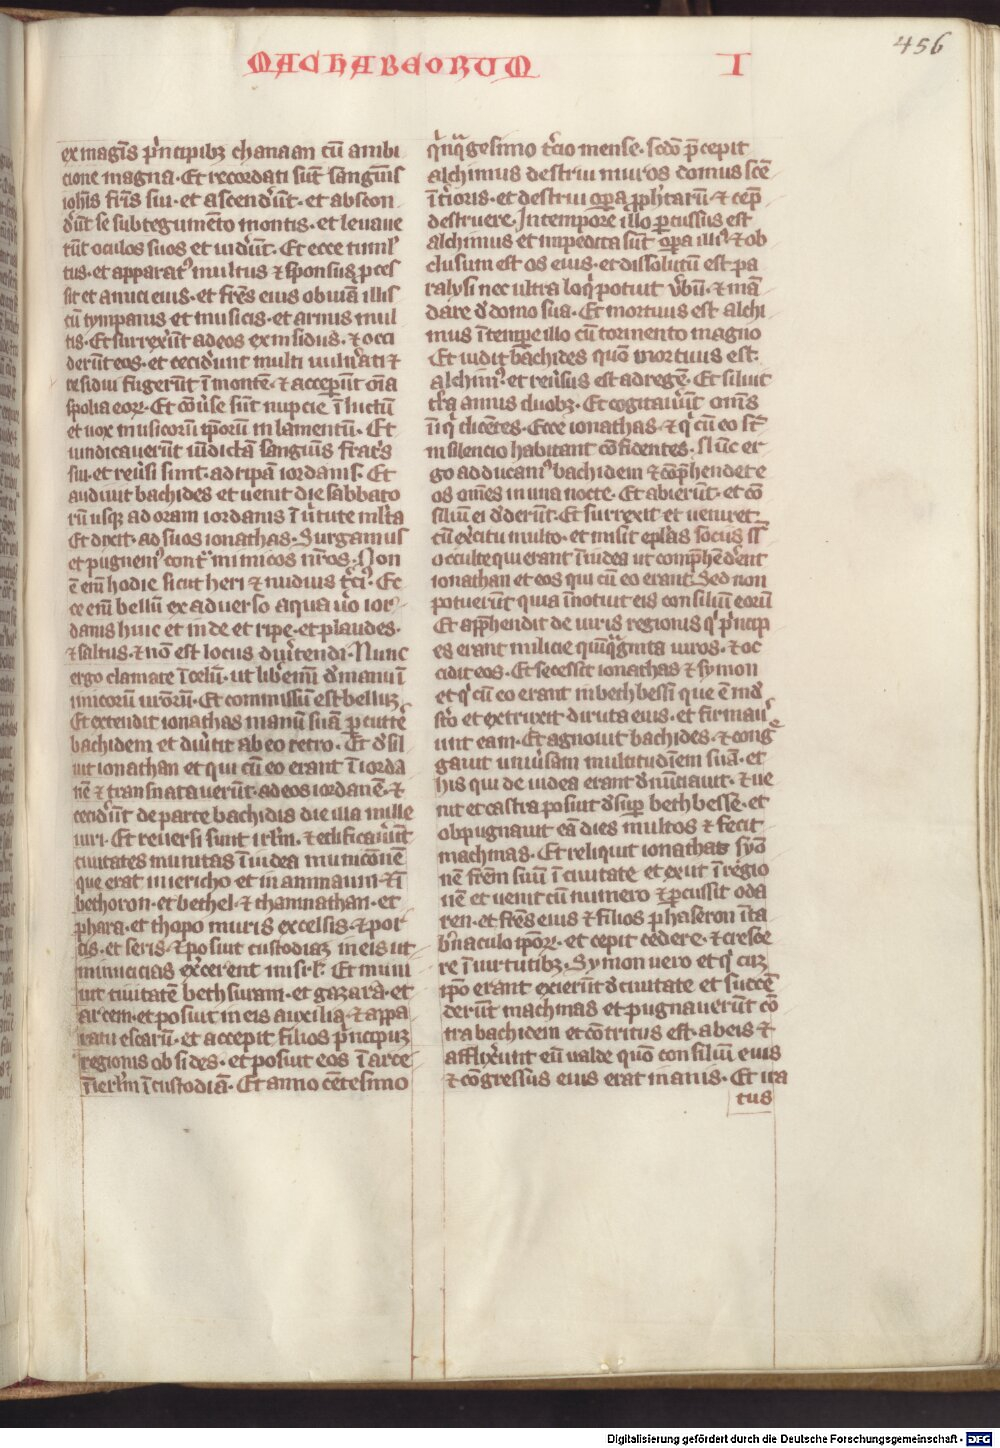 MACHABEORUM I
456
ex magīs p̄ncipibꝫ chanaan cū ambi
cione magna· Et recordati sūt sanguīs
ioh̄is fr̄is sui· et ascend̄ūt· et abscon
d̄ūt se sub tegumēto montis· et levave
rūt oculos suos et vid̄ūt· Et ecce tuml᷒
tus· et apparat᷒ multus ⁊ sponsus ꝓces
sit et amici eius· et fr̄es eius obviā illis
cū tympanis et musicis· et armis mul
tis· Et surrex̄ūt ad eos ex insidiis· ⁊ occi
derūt eos· et cecid̄unt multi vuln̄ati ⁊
residui fugerūt ī montē· ⁊ acceꝑūt om̄ia
spolia eoꝝ· Et cōv̄se sūt nupcie ī luctū
et vox musicorū ip̄orū in lamentū· Et
vindicaverūt vīdictā sanguīs fratr̄s
sui· et rev̄si sunt· ad ripā iordanis· Et
audivit bachides et venit die sabbato
rū usqꝫ ad oram iordanis ī v̄tute ml̄ta
Et dixit· ad suos ionathas· Surgamus
et pugnem᷒ contᵃ inimicos nr̄os· Non
ē em̄ hodie sicut heri ⁊ nudius t̄ci᷒· Ec
ce em̄ bellū ex adverso aqua v̄o ior
danis hinc et inde et ripe· et pludes·
⁊ saltus· ⁊ nō est locus div̄tendi· Nunc
ergo clamate ī celū· ut lib̄emī d̄ manu ī
imicorū vr̄orū· Et commissū est bellūꝫ
Et extendit ionathas manū suā ꝑcutt̄e
bachidem et div̄tit ab eo retro· Et d̄sil
iit ionathan et qui cū eo erant ī iorda
nē ⁊ transnataverūt· ad eos iordanē· ⁊
cecid̄ūt de parte bachidis die illa mille
viri· Et reversi sunt irlm̄· ⁊ edificav̄ūt
civitates munitas ī iudea municōnē
que erat in iericho et in ammaum· ⁊ ī
bethoron· et bethel· ⁊ thamnathan· et
phara· et thopo muris excelsis· ⁊ por
tis· et seris· ⁊ posuit custodiaꝫ in eis ut
inimicicias ex̄cerent in isrl̄· Et muni
vit civitatē bethsuram· et gazarā· et
arcem· et posuit in eis auxilia· ⁊ appa
ratū escarū· et accepit filios p̄ncipuꝫ
regionis obsides· et posuit eos ī arce
ī ierlm̄ ī custodiā· Et anno cētesimo
qͥnqᵃgesimo t̄cio mense· scd̄o p̄cepit
alchimus destrui muros domus scē
īt̄ioris· et destrui oꝑa ꝓph̄tarū· ⁊ cep̄
destruere· In tempore illo ꝑcussus est
alchimus et impedita sūt oꝑa illi᷒ ⁊ ob
clusum est os eius· et dissolutū est· pa
ralysi nec ultra loqͥ potuit v̄bū· ⁊ mā
dare d̄ domo sua· Et mortuus est alchi
mus ī tempe illo cū tormento magno
Et vidit bachides quō mortuus est·
alchim᷒· et rev̄sus est ad regē· Et siluit
t̄ra annis duobꝫ· Et cogitav̄ūt om̄s
inqͥ dicētes· Ecce ionathas· ⁊ qͥ cū eo st̄
in silencio habitant cōfidentes· Nūc er
go adducam᷒ bachidem ⁊ cōp̄hendet e
os om̄es in una nocte· Et abierūt· et cō
siliū ei d̄derūt· Et surrexit et veniret
cū ex̄citu multo· et misit ep̄las sociis s̄
occulte qui erant ī iudea ut comp̄hēd̄ent
ionathan et eos qui cū eo erant· Sed non
potuerūt quia īnotuit eis consiliū eorū
Et app̄hendit de viris regionis qͥ p̄ncip
es erant milicie quīqᵃginta viros· ⁊ oc
cidit eos· Et secessit ionathas ⁊ symon
et qͥ cū eo erant in bethbessī que ē ī d̄
s̄to et extruxit diruta eius· et firmav̄
unt eam· Et agnovit bachides· ⁊ conḡ
gavit univ̄sam multitudīem suā· et
his qui de iudea erant d̄nūciavit· ⁊ ve
nit et castra posuit d̄suꝑ bethbessē· et
obpugnavit eā dies multos ⁊ fecit
machinas· Et reliquit ionathas syō
nē fr̄em suū ī civitate et exiit ī regio
nē et venit cū numero ⁊ ꝑcussit oda
ren· et fr̄es eius ⁊ filios phaseron ī ta
b̄naculo ip̄orꝝ· et cepit cedere· ⁊ cresce
re ī virtutibꝫ· Symon vero et qͥ cuꝫ
ip̄o erant exierūt d̄ civitate et succē
derūt machinas et pugnaverūt cō
tra bachidem et cōtritus est· ab eis ⁊
afflix̄unt eū valde quō consiliū eius
⁊ cōgressus eius erat inanis· Et ira
tus
Digitalisierung gefördert durch die Deutsche Forschungsgemeinschaft - DFG